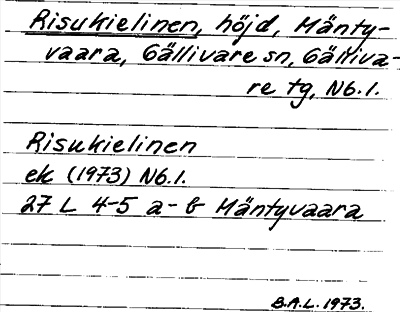 Risukielinen, höjd, Mänty-
vaara, Gällivare sn, Gälliva-
re tg, Nb.l.
Risukielinen
ek (1973) Nb.l.
27 L 4-5 a-b Mäntyvaara
B.A.L. 1973.